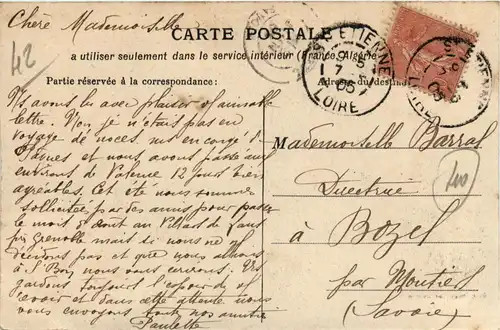 Chère Mademoiselle
CARTE POSTALE
a utiliser seulement dans le service intérieur (France, Algérie
Partie réservée à la correspondance:
Adresse du destina
ST ETIENNE
05
LOIRE
42
40
Ns avons lu avec plaisir v/ aimable
lettre. Non je n'étais pas en
voyage de noces, ms en congé d
Pâques et nous avons passé aux
environs de Valence 12 jours bien
agréables. Cet été nous sommes
sollicitée par des amis pour passer
le mois d'août au Villars de Lans
près Grenoble mais si nous ne
décidons pas et que nous allions
à S Bon nous vous
gardons toujours l'espoir de
revoir et dans cette attente nous
vous envoyons tout nos amitiés
Paulette
Mademoiselle Barral
Directrice
à Bozel
par Moutiers
(Savoie)